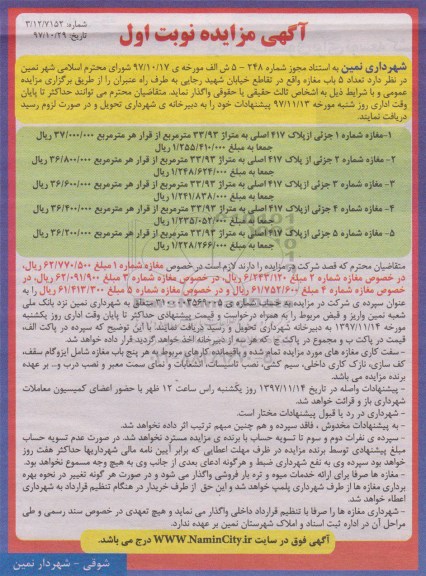 شماره: ۳/۱۲/۷۱۵۲
تاریخ: ۹۷/۱۰/۲۹
آگهی مزایده نوبت اول
شهرداری نمین به استناد مجوز شماره ۲۴۸ - ۵ ش الف مورخه ی ۹۷/۱۰/۱۷ شورای محترم اسلامی شهر نمین
در نظر دارد تعداد ۵ باب مغازه واقع در تقاطع خیابان شهید رجایی به طرف راه عنبران را از طریق برگزاری مزایده
عمومی و با شرایط ذیل به اشخاص ثالث حقیقی یا حقوقی واگذار نماید. متقاضیان محترم می توانند حداکثر تا پایان
وقت اداری روز شنبه مورخه ۹۷/۱۱/۱۳ پیشنهادات خود را به دبیرخانه ی شهرداری تحویل و در صورت لزوم رسید
دریافت نمایند.
۱-مغازه شماره ۱ جزئی ازپلاک ۴۱۷ اصلی به متراژ ۳۳/۹۳ مترمربع از قرار هر مترمربع ۳۷/۰۰۰/۰۰۰ ریال
جمعا به مبلغ ۱/۲۵۵/۴۱۰/۰۰۰ ریال
۲- مغازه شماره ۲ جزئی ازپلاک ۴۱۷ اصلی به متراژ ۳۳/۹۳ مترمربع از قرار هر مترمربع ۳۶/۸۰۰/۰۰۰ ریال
جمعا به مبلغ ۱/۲۴۸/۶۲۴/۰۰۰ ریال
۳- مغازه شماره ۳ جزئی ازپلاک ۴۱۷ اصلی به متراژ ۳۳/۹۳ مترمربع از قرار هر مترمربع ۳۶/۶۰۰/۰۰۰ ریال
جمعا به مبلغ ۱/۲۴۱/۸۳۸/۰۰۰ ریال
۴- مغازه شماره ۴ جزئی ازپلاک ۴۱۷ اصلی به متراژ ۳۳/۹۳ مترمربع از قرار هر مترمربع ۳۶/۴۰۰/۰۰۰ ریال
جمعا به مبلغ ۱/۲۳۵/۰۵۲/۰۰۰ ریال
۵- مغازه شماره ۵ جزئی ازپلاک ۴۱۷ اصلی به متراژ ۳۳/۹۳ مترمربع از قرار هر مترمربع ۳۶/۲۰۰/۰۰۰ ریال
جمعا به مبلغ ۱/۲۲۸/۲۶۶/۰۰۰ ریال
متقاضیان محترم که قصد شرکت در مزایده را دارند لازم است در خصوص مغازه شماره ۱ مبلغ ۶۲/۷۷۰/۵۰۰ ریال،
در خصوص مغازه شماره ۲ مبلغ ۶/۲۴۳/۱۲۰ ریال، در خصوص مغازه شماره ۳ مبلغ ۶۲/۰۹۱/۹۰۰ ریال، در
خصوص مغازه شماره ۴ مبلغ ۶۱/۷۵۲/۶۰۰ ریال و در خصوص مغازه شماره ۵ مبلغ ۶۱/۴۱۳/۳۰۰ ریال را به
عنوان سپرده ی شرکت در مزایده به حساب شماره ی متعلق به شهرداری نمین نزد بانک ملی
شعبه نمین واریز و فیش مربوط را به همراه درخواست و قیمت پیشنهادی حداکثر تا پایان وقت اداری روز یکشنبه
مورخه ۱۳۹۷/۱۱/۱۴ به دبیرخانه شهرداری تحویل و رسید دریافت نمایند. با این توضیح که سپرده در پاکت الف،
قیمت در پاکت ب و مجموع در پاکت ج که هر سه از دبیرخانه اخذ خواهد گردید قرار داده خواهد شد.
- سفت کاری مغازه های مورد مزایده تمام شده و باقیمانده کارهای مربوط به هر پنج باب مغازه شامل ایزوگام سقف،
کف سازی، نازک کاری داخلی، سیم کشی، نصب تاسیسات، انشعابات و نمای سمت معبر و نصب درب و... بر عهده
برنده مزایده می باشد.
- پیشنهادات واصله در تاریخ ۱۳۹۷/۱۱/۱۴ روز یکشنبه راس ساعت ۱۲ ظهر با حضور اعضای کمیسیون معاملات
شهرداری باز و قرائت خواهد شد.
- شهرداری در رد یا قبول پیشنهادات مختار است.
- به پیشنهادات مخدوش ، فاقد سپرده و هم چنین مبهم ترتیب اثر داده نخواهد شد.
- سپرده ی نفرات دوم و سوم تا تسویه حساب با برنده ی مزایده مسترد نخواهد شد. در صورت عدم تسویه حساب
مبلغ پیشنهادی توسط برنده مزایده در ظرف مهلت اعطایی که برابر آیین نامه مالی شهرداریها حداکثر هفت روز
خواهد بود سپرده وی به نفع شهرداری ضبط و هرگونه ادعای بعدی از جانب وی به هیچ وجه مسموع نخواهد بود.
- مغازه ها صرفا برای ارائه خدمات میوه و تره بار فروشی واگذار می شود و در صورت هر گونه تغییر در نحوه بهره
برداری مغازه ها از طرف شهرداری پلمپ خواهد شد و این حق از طرف خریدار در هنگام تنظیم قرارداد به شهرداری
اعطاء خواهد شد.
- شهرداری مغازه ها را صرفا با تنظیم قرارداد داخلی واگذار می نماید و هیچ تعهدی در خصوص سند رسمی و طی
مراحل آن در اداره ثبت اسناد و املاک شهرستان نمین بر عهده ندارد.
آگهی فوق در سایت WWW.NaminCity.ir درج می باشد.
شوقی - شهردار نمین